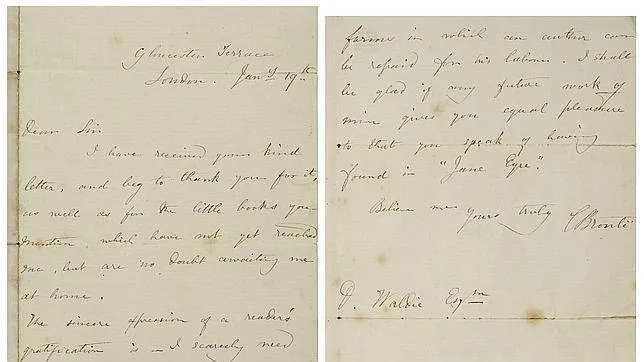 Gloucester Terrace
London. Jany 19th
Dear Sir
I have received your kind
letter, and beg to thank you for it,
as well as for the little books you
mention, which have not yet reached
me, but are no doubt awaiting me
at home.
The sincere expression of a reader's
gratification is – I scarcely need
forms in which an author can
be repaid for his labour. I shall
be glad if any future work of
mine gives you equal pleasure
to that you speak of having
found in "Jane Eyre".
Believe me
yours truly
CBrontë
D. Waldie Esqre